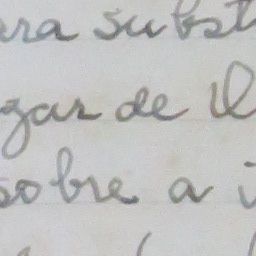 ara subst
gar de
sobre a i